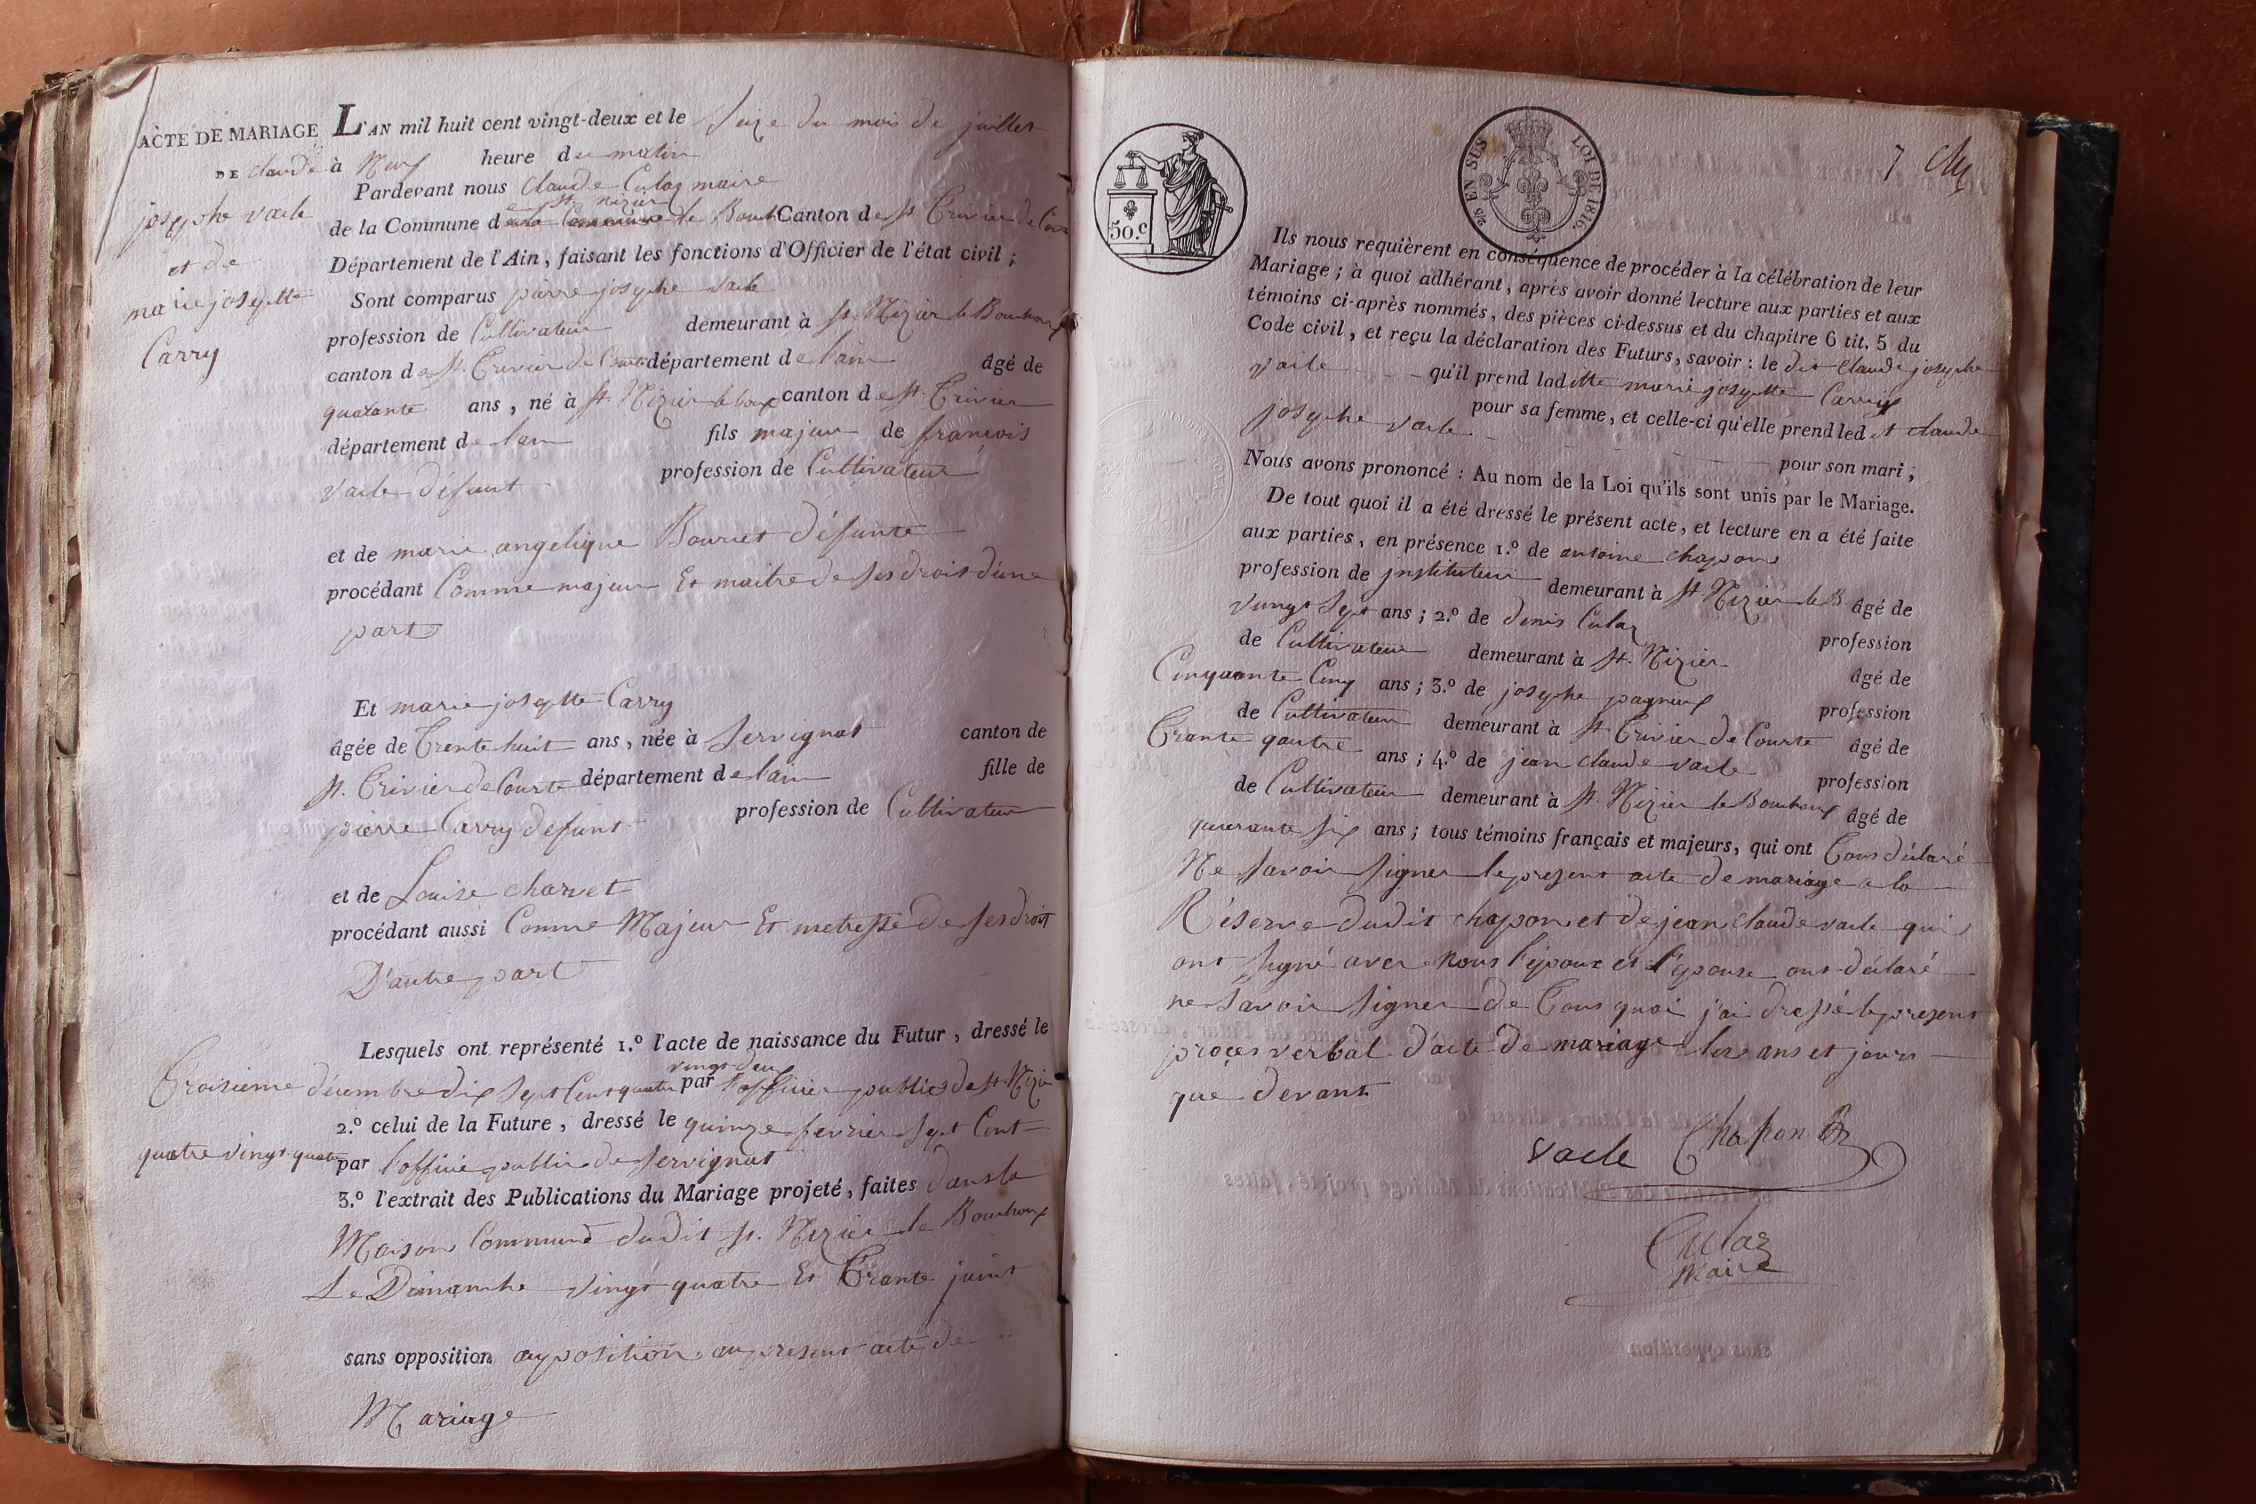 ACTE DE MARIAGE
DE claude
josephe vacle
et de
marie joseptte
Carry
L'AN mil huit cent vingt-deux et le seize du mois de juillet
à Neuf heure du matin
Pardevant nous claude Culaz maire
de la Commune de St Nizier le Bouch Canton de St Trivier de Cour
Département de l'Ain, faisant les fonctions d'Officier de l'état civil;
Sont comparus pierre josephe vacle
profession de Cultivateur demeurant à St. Nizier le Bouchoux
canton de St. Trivier de Courte département de lain âgé de
quarante ans, né à St. Nizier le boux canton de St. Trivier
département de lain fils majeur de françois
vacle défunt profession de Cultivateur
et de marie angelique Bouriet défunte
procédant Comme majeur Et maitre de ses droit d'une
part
Et marie joseptte Carry
âgée de Trente huit ans, née à Servignat canton de
St. Trivier de Courte département de lain fille de
pierre Carry defunt profession de Cultivateur
et de Louise charvet
procédant aussi Comme Majeur Et metresse de ses droit
D'autre part
Lesquels ont représenté 1.º l'acte de naissance du Futur, dressé le
vingt deu
Troisieme décembre dix sept Cent quatre par l'officier publics de St. Nizier
2.º celui de la Future, dressé le quinze fevrier sept Cent
quatre vingt quatre par l'officié public de Servignat
3.º l'extrait des Publications du Mariage projeté, faites dans la
Maison Commune dudit St. Nizier le Bouchoux
Le Dimanche vingt quatre Et Trante juint
sans opposition opposition au present acte de
Mariage
50.c
2/5 EN SUS LOI DE 1816.
7
Ils nous requièrent en conséquence de procéder à la célébration de leur
Mariage; à quoi adhérant, après avoir donné lecture aux parties et aux
témoins ci-après nommés, des pièces ci-dessus et du chapitre 6 tit. 5 du
Code civil, et reçu la déclaration des Futurs, savoir: le dit claude josephe
vacle qu'il prend laditte marie josepte Carry
pour sa femme, et celle-ci qu'elle prend led it claude
josephe vacle pour son mari;
Nous avons prononcé: Au nom de la Loi qu'ils sont unis par le Mariage.
De tout quoi il a été dressé le présent acte, et lecture en a été faite
aux parties, en présence 1.º de antoine chapon
profession de jnstituteur demeurant à St Nizier le B âgé de
vingt sept ans; 2.º de denis Culaz profession
de Cultivateur demeurant à St. Nizier âgé de
Cinquante Cinq ans; 3.º de josephe pagneux profession
de Cultivateur demeurant à St Trivier de Courte âgé de
Trante qautre ans; 4.º de jean claude vacle profession
de Cultivateur demeurant à St. Nizier le Bouchoux âgé de
quarante six ans; tous témoins français et majeurs, qui ont Tous déclaré
Ne savoir signer le present acte de mariage a la
Réserve dudit chapon et de jean claude vacle qui
ont signé avec Nous l'époux et l'épouse ont déclaré
ne savoir signer de Tous quoi j'ai dressé le present
proces verbal d'acte de mariage les ans et jours
que devant
vacle Chapon
Culaz
Maire